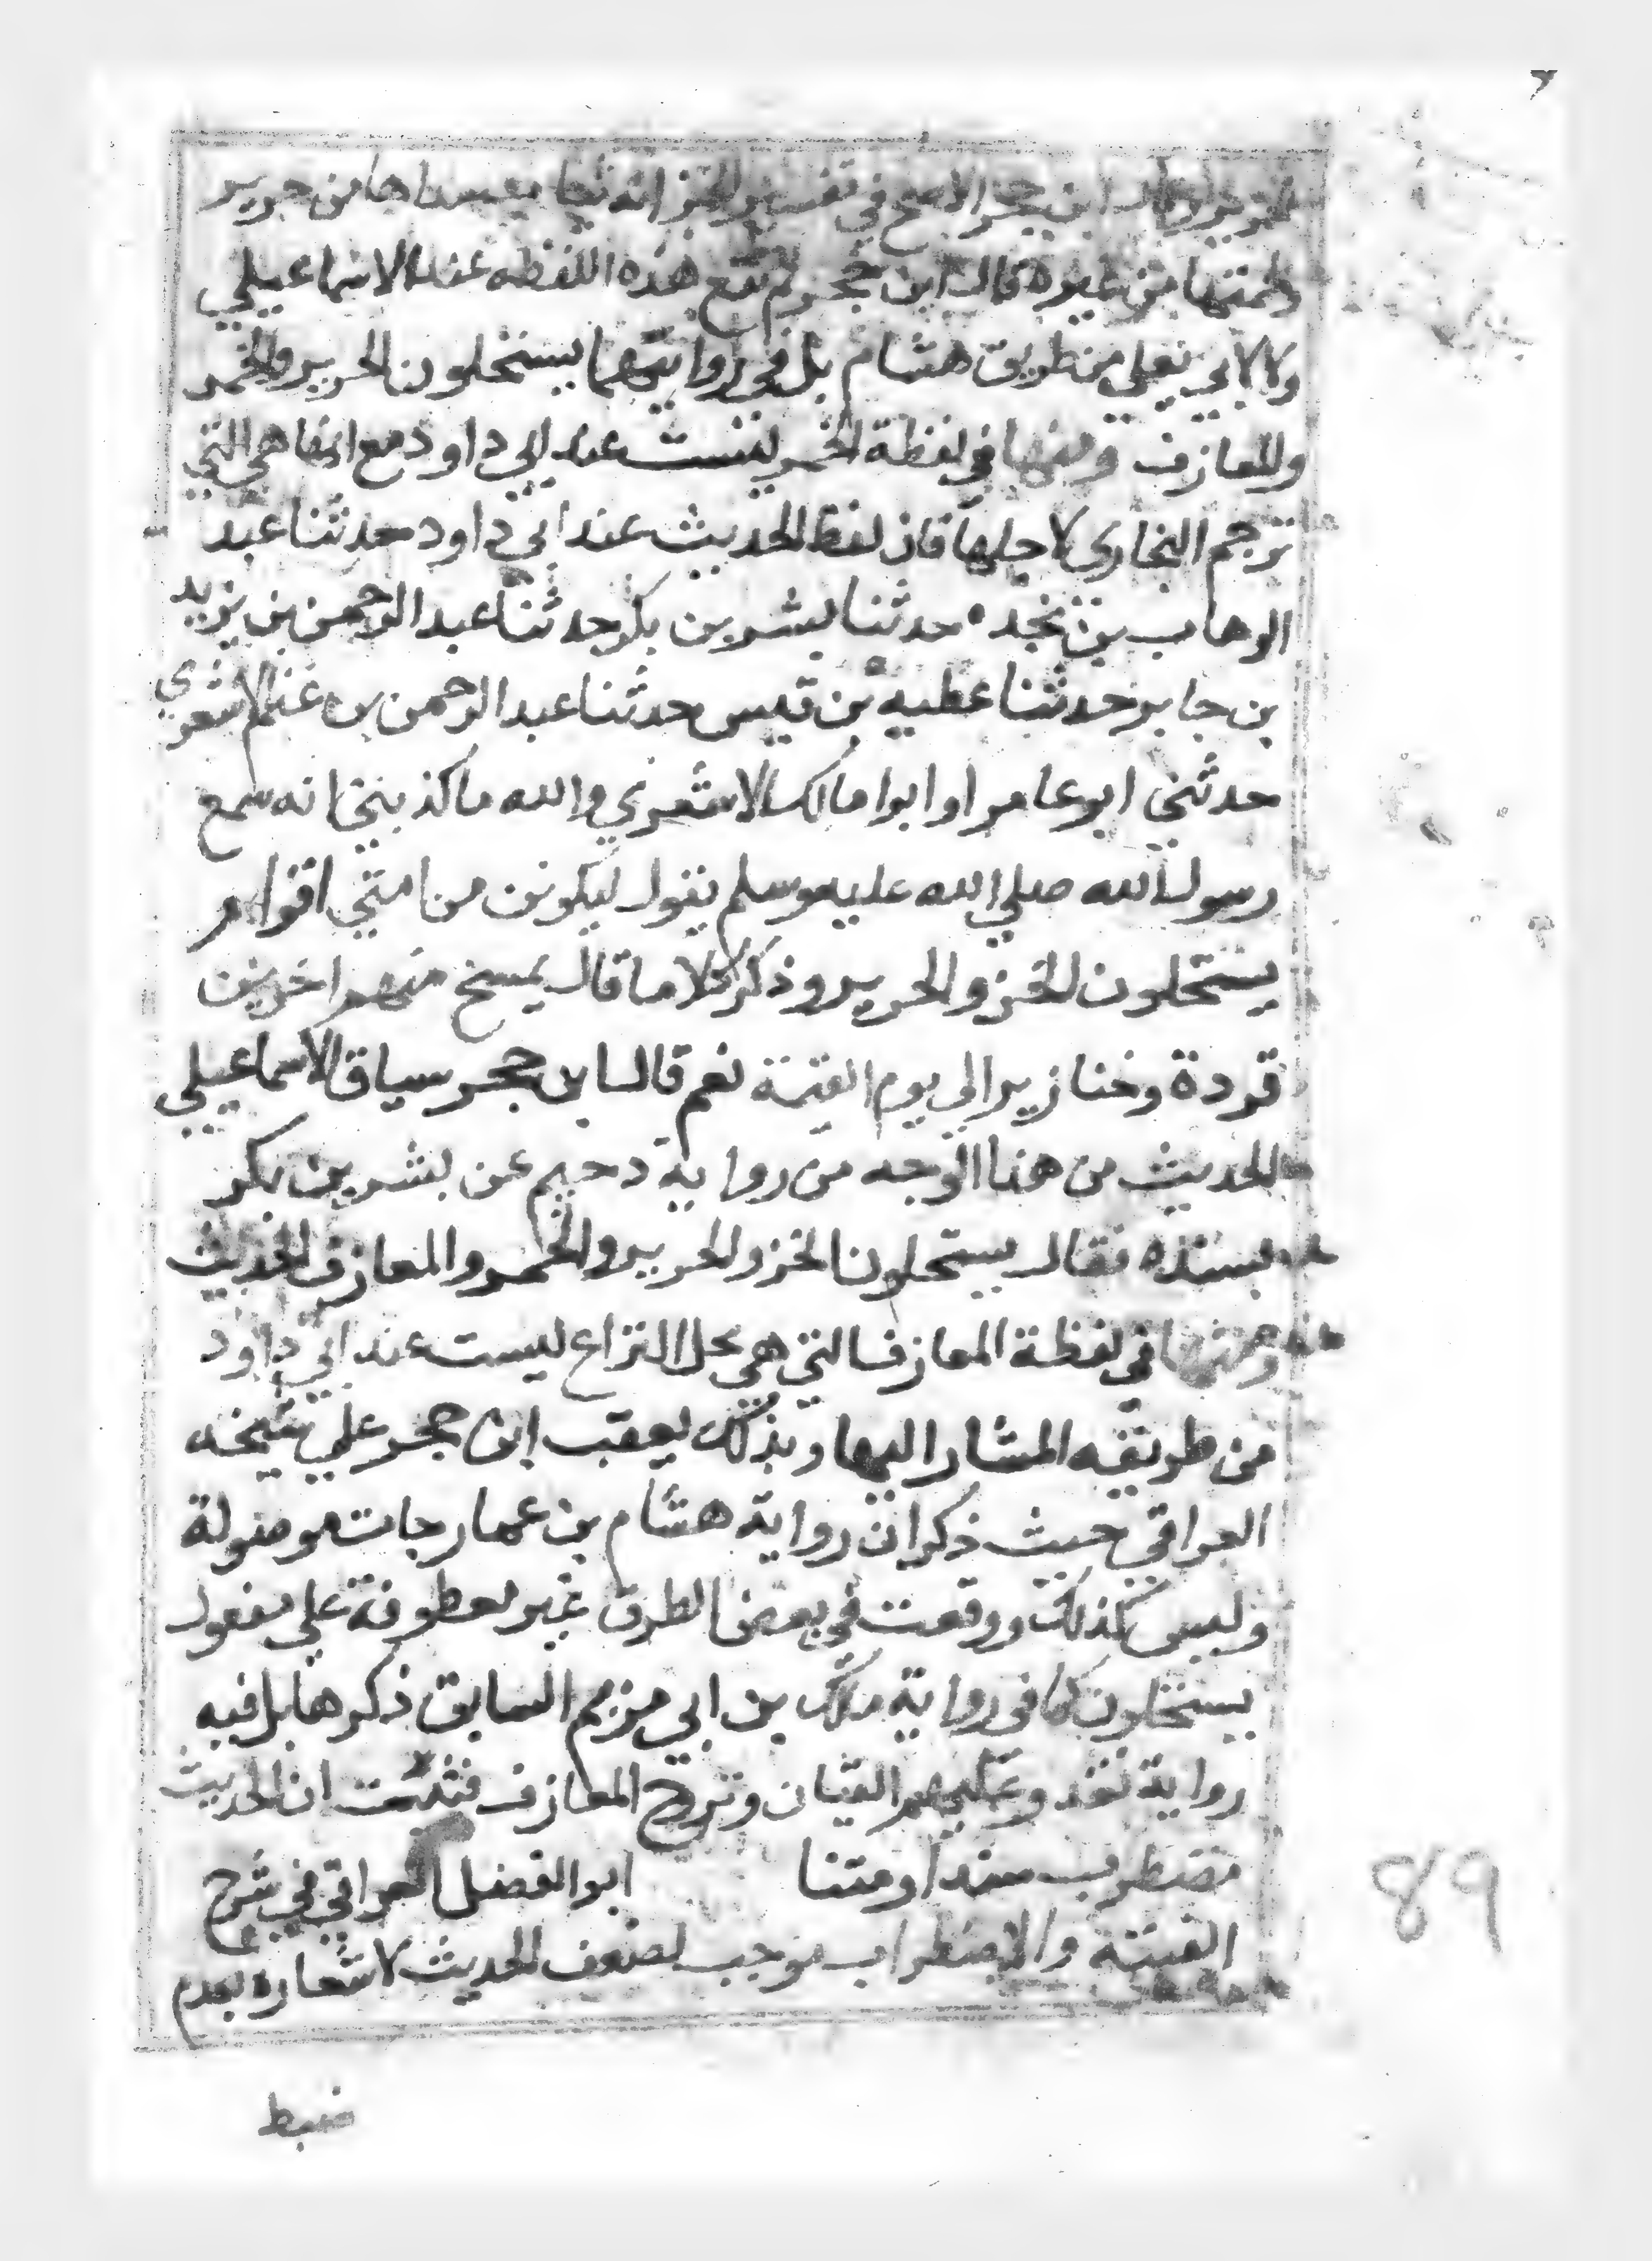 ابن حجر الاصح في تفسير الخز انه ثياب من حرير
من غيره قال ابن حجر لم تقع هذه اللفظه عند الاسماعيلي
ولا لابي نعيم من طريق هشام بل في روايتهما يستحلون الحرير والخمر
والمعازف ومنها في لفظة الخمر ليست عند ابي داود مع انها هي التي
ترجم البخاري لاجلها فان لفظ الحديث عند ابي داود حدثنا عبد
الوهاب بن نجده حدثنا بشر بن بكر حدثنا عبد الرحمن بن يزيد
بن جابر حدثنا عطيه بن قيس حدثنا عبد الرحمن بن غنم الاشعري
حدثني ابو عامر او ابوا مالك الاشعري والله ما كذبني انه سمع
رسول الله صلي الله عليه وسلم يقول ليكونن من امتي اقوام
يستحلون الخز والحرير وذكر كلاما قال يمسخ منهم اخرين
قردة وخنازير الي يوم القيمة نعم قال ابن حجر سياق الاسماعيلي
الحديث من هذا الوجه من رواية دحيم عن بشر بن بكر
بسنده فقال يستحلون الخز والحرير والخمر والمعازف الحديث
ومنها في لفظة المعازف التي هي محل النزاع ليست عند ابي داود
من طريقه المشار اليها وبذلك يعقب ابن حجر علي شيخه
العراقي حيث ذكر ان رواية هشام بن عمار جات موصولة
وليس كذلك ووقعت في بعض الطرق غير معطوفة علي مفعول
يستحلون كما في رواية ملك بن ابي مريم السابق ذكرها بل فيه
رواية تغد وعليهم القيان وتروح المعازف فثبت ان الحديث
مضطرب سندا ومتنا ابو الفضل العراقي في شرح
الفيته والاضطراب موجب لضعف الحديث لاشعاره بعدم
ضبط
89